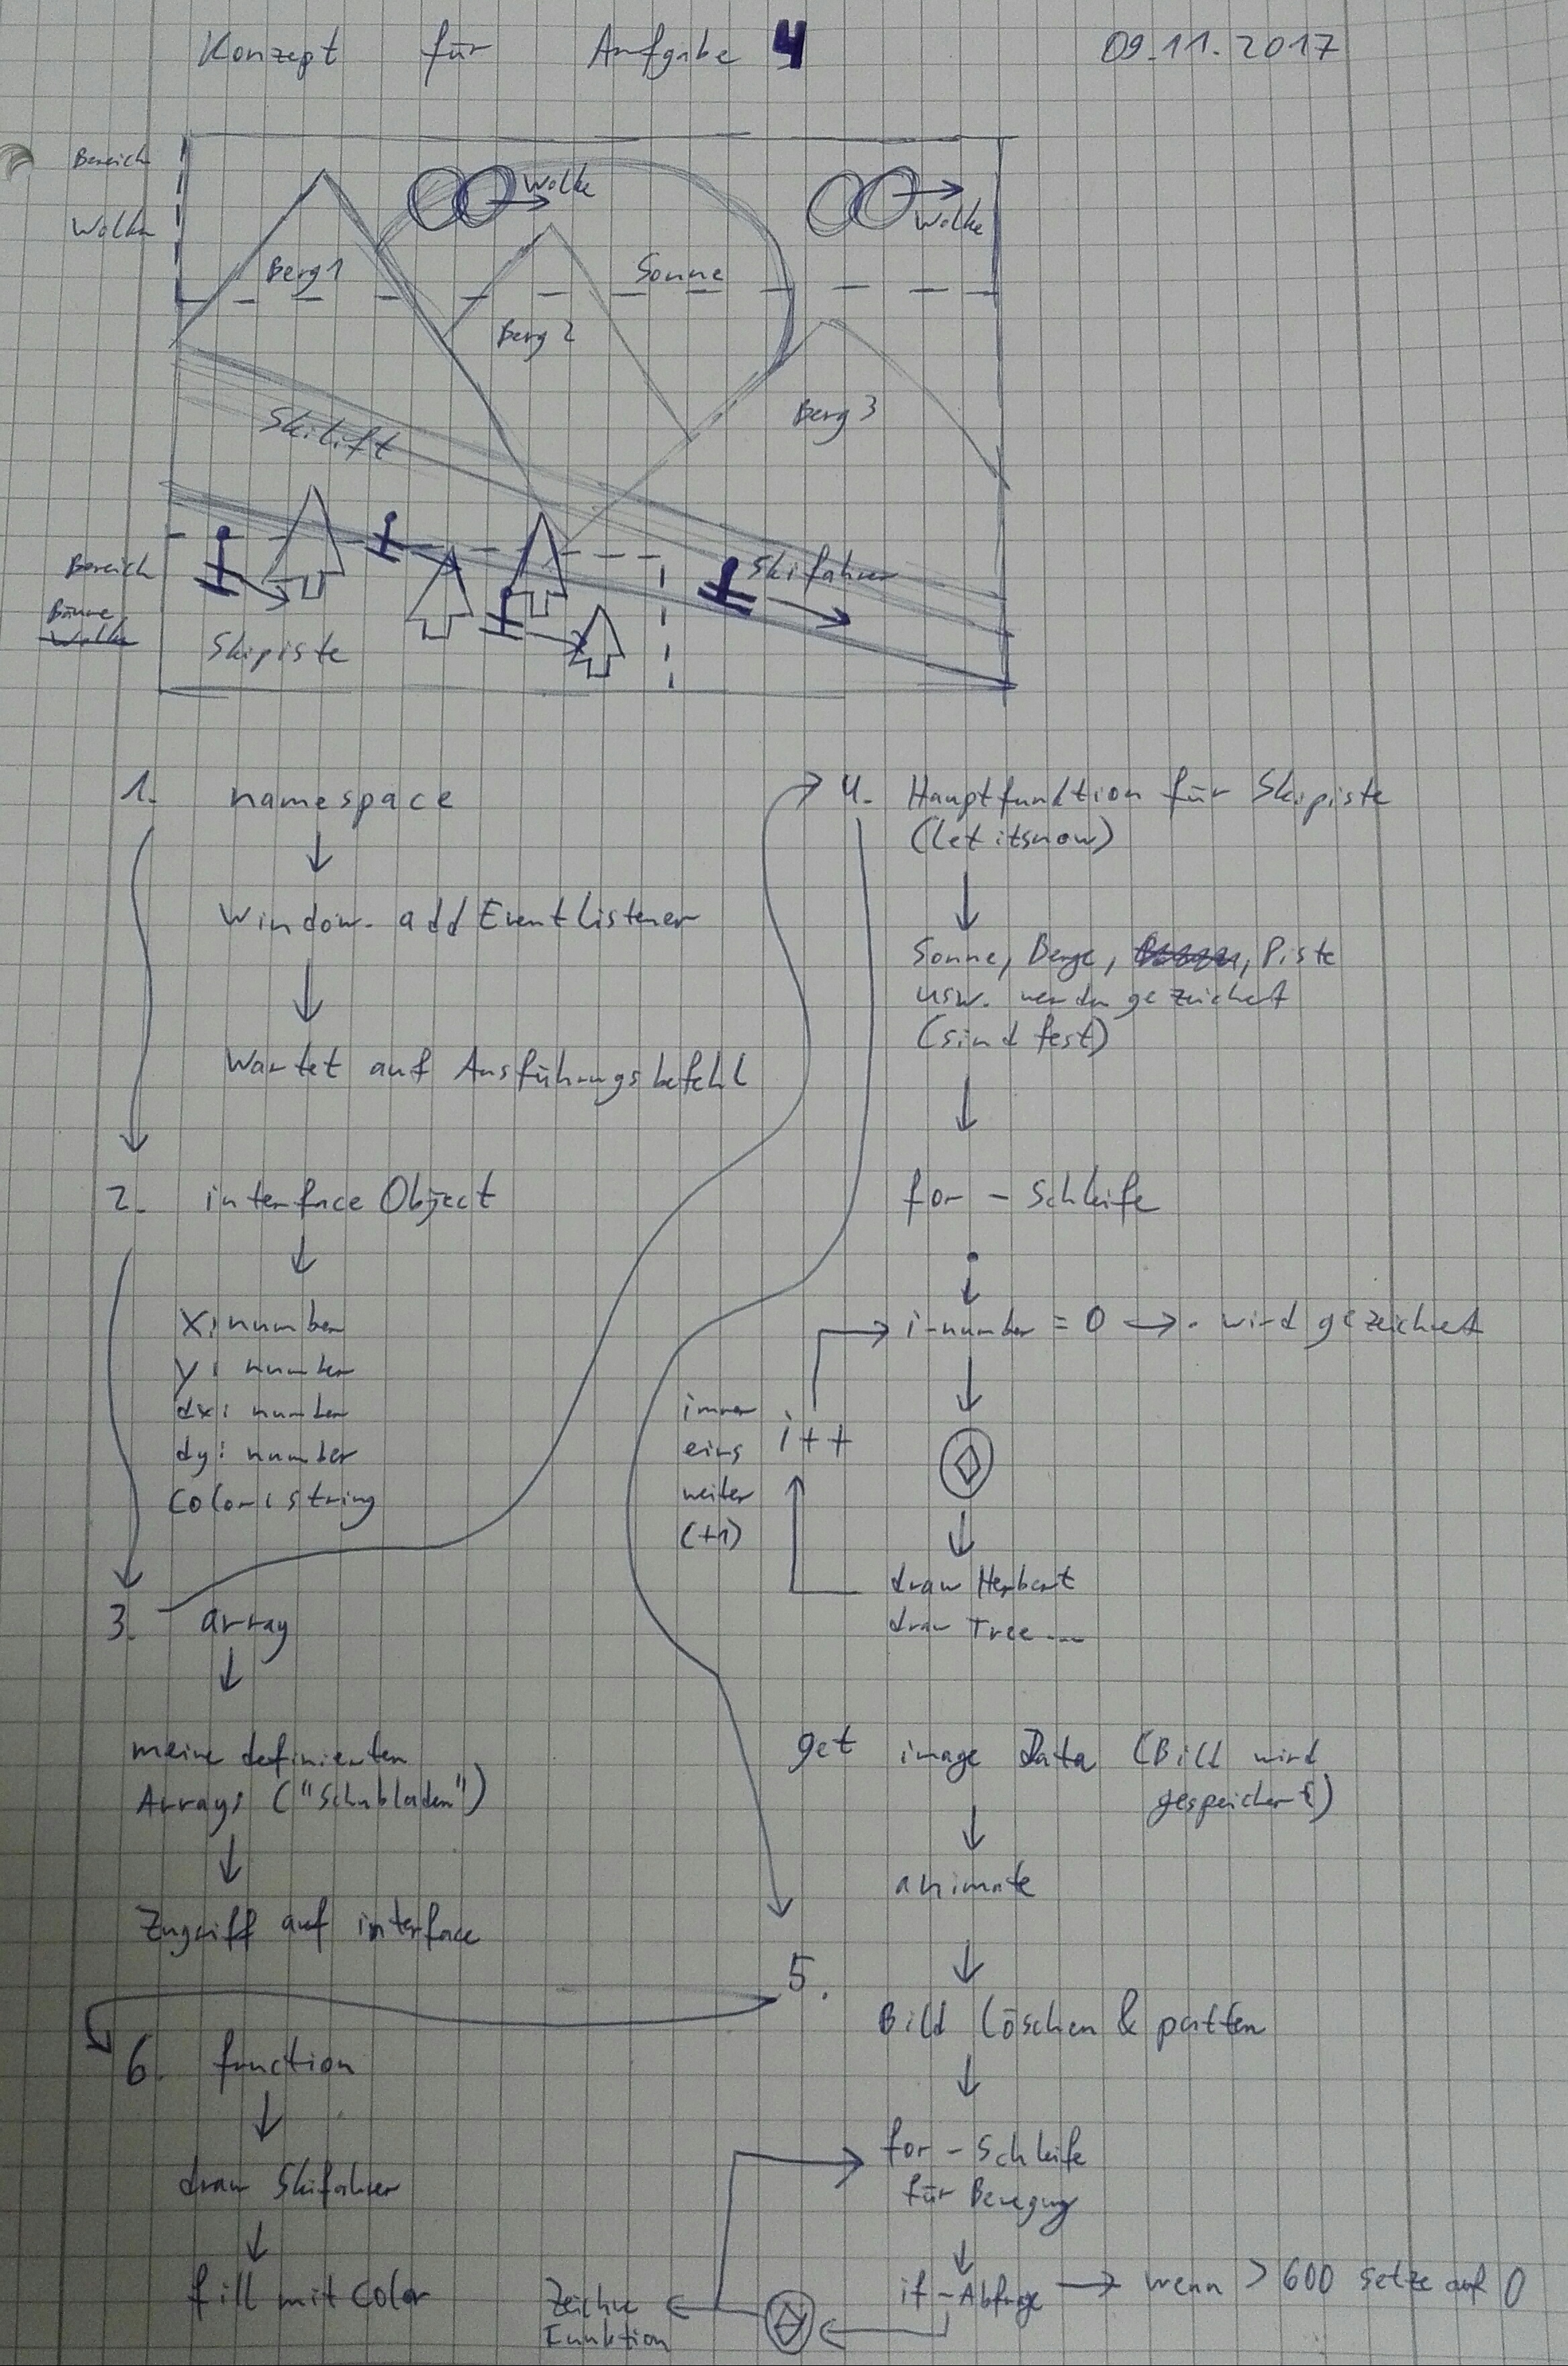 Konzept für Aufgabe 4 09.11.2017
Bereich
Wolken
Wolke
Wolke
Berg 1
Sonne
Berg 2
Berg 3
Skilift
Skifahrer
Bereich
Bäume
Wolke
Skipiste
1. namespace
window.addEventListener
Wartet auf Ausführungsbefehl
2. interface Object
x: number
y: number
dx: number
dy: number
Color: string
3. array
meine definierten
Arrays ("Schubladen")
Zugriff auf interface
4. Hauptfunktion für Skipiste
(let itsnow)
Sonne, Berge, , Piste
usw. werden gezeichnet
(sind fest)
for - Schleife
i-number = 0 wird gezeichnet
immer
eins
weiter
(+1)
i++
draw Herbert
draw Tree ...
get image Data (Bild wird
gespeichert)
animate
5.
Bild löschen &
for - Schleife
für Bewegung
if - Abfrage wenn > 600 setze auf 0
Zeichne
Funktion
6. function
draw Skifahrer
fill mit Color